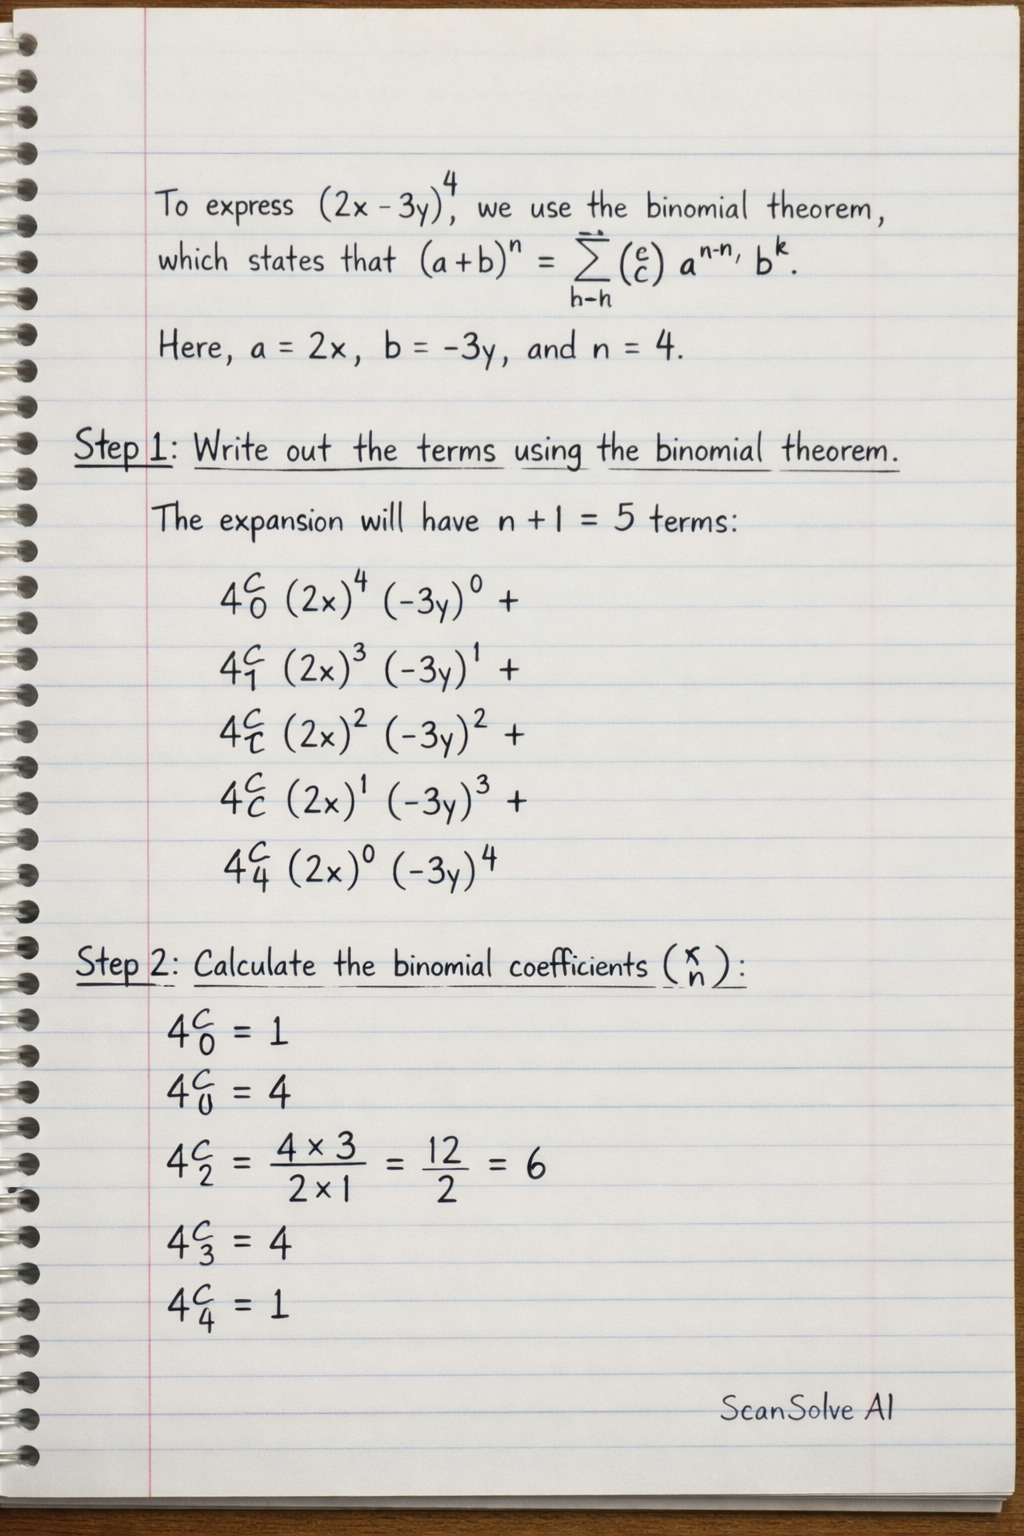 To express (2x - 3y)⁴, we use the binomial theorem,
which states that (a + b)ⁿ = ∑ h-h (e c) aⁿ⁻ⁿ, bᵏ.
Here, a = 2x, b = -3y, and n = 4.
Step 1: Write out the terms using the binomial theorem.
The expansion will have n + 1 = 5 terms:
4C0 (2x)⁴ (-3y)⁰ +
4C1 (2x)³ (-3y)¹ +
4C (2x)² (-3y)² +
4CC (2x)¹ (-3y)³ +
4C4 (2x)⁰ (-3y)⁴
Step 2: Calculate the binomial coefficients (x n):
4C0 = 1
4C0 = 4
4C2 = 4 × 3 / 2 × 1 = 12 / 2 = 6
4C3 = 4
4C4 = 1
ScanSolve AI